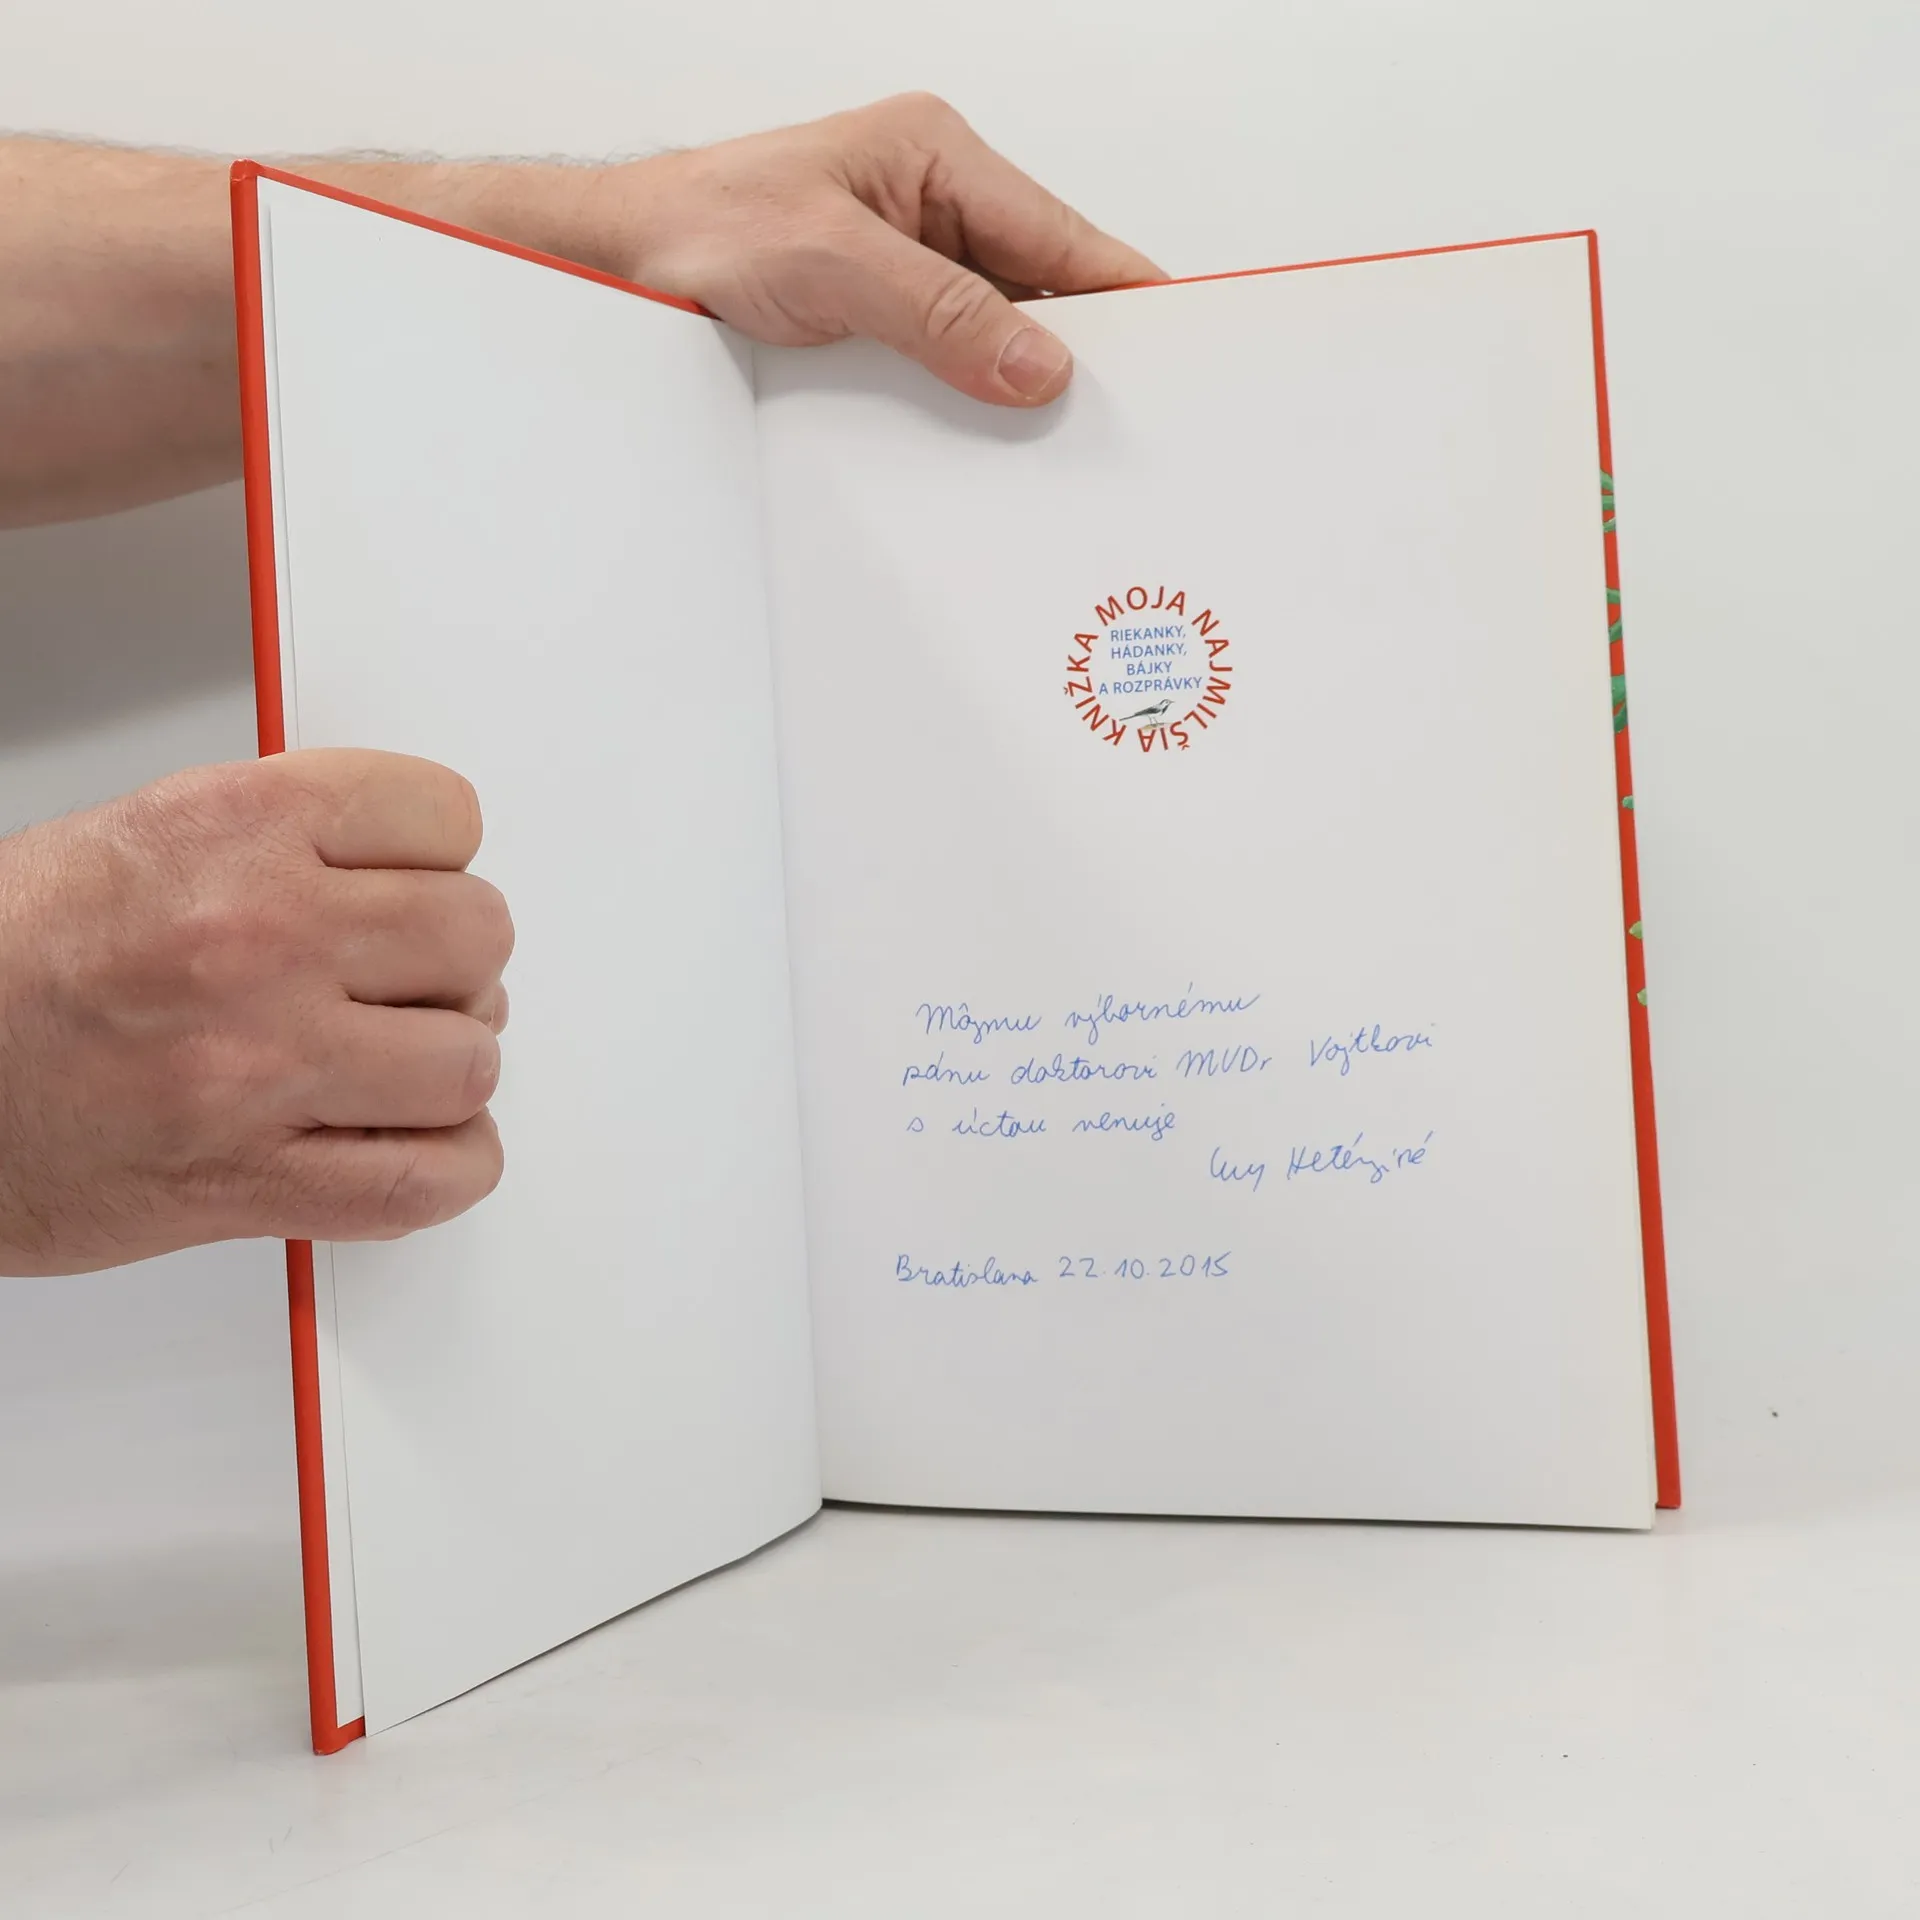 MOJA NAJMILŠIA KNIŽKA
RIEKANKY,
HÁDANKY,
BÁJKY
A ROZPRÁVKY
Môjmu výbornému
pánu doktorovi MVDr Vojtkovi
s úctou venuje
Bratislava 22.10.2015